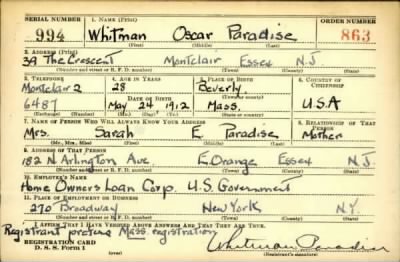 SERIAL NUMBER 1. NAME (Print) ORDER NUMBER
994 Whitman Oscar Paradise 863
(First) (Middle) (Last)
2. ADDRESS (Print)
39 The Crescent Montclair Essex N.J
(Number and street or R. F. D. number) (Town) (County) (State)
3. TELEPHONE 4. AGE IN YEARS 5. PLACE OF BIRTH 6. COUNTRY OF CITIZENSHIP
Montclair 2 28 Beverly
DATE OF BIRTH
6487 May 24 1912 Mass. U.S.A
(Exchange) (Number) (Mo.) (Day) (Yr.) (State or country)
7. NAME OF PERSON WHO WILL ALWAYS KNOW YOUR ADDRESS 8. RELATIONSHIP OF THAT PERSON
Mrs. Sarah E. Paradise Mother
(Mr., Mrs., Miss) (First) (Middle) (Last)
9. ADDRESS OF THAT PERSON
182 N. Arlington Ave. E. Orange Essex N.J.
(Number and street or R. F. D. number) (Town) (County) (State)
10. EMPLOYER'S NAME
Home Owners Loan Corp. U.S. Government
11. PLACE OF EMPLOYMENT OR BUSINESS
270 Broadway New York N.Y.
(Number and street or R. F. D. number) (Town) (County) (State)
I AFFIRM THAT I HAVE VERIFIED ABOVE ANSWERS AND THAT THEY ARE TRUE.
Registrant Mass. registration
REGISTRATION CARD
D. S. S. Form 1 Whitman Paradise
(Registrant's signature)